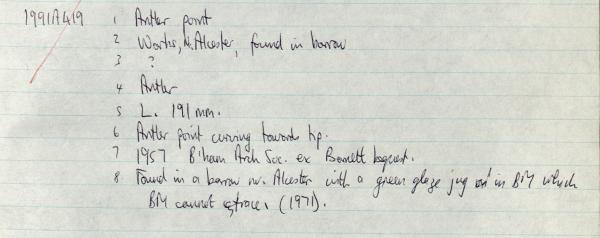 1991A419 1 Antler point
2 Warks, Nr. Alcester, found in barrow
3 ?
4 Antler
5 L. 191 mm.
6 Antler point curving towards tip.
7 1957 B'ham Arch Soc. ex Barnett bequest.
8 Found in a barrow nr. Alcester with a green glaze jug in BM which
BM cannot trace. (1971).